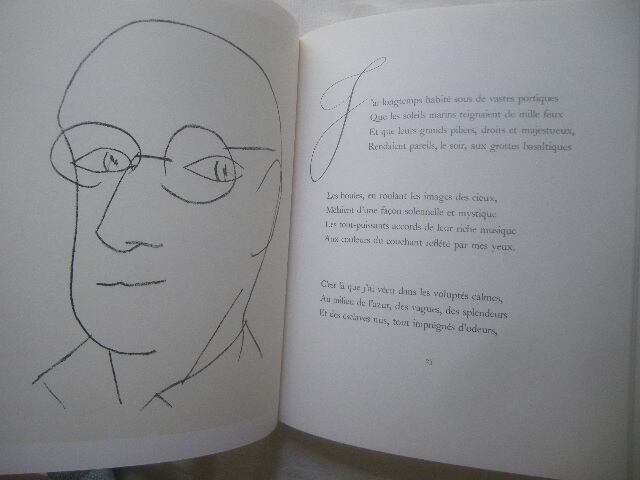 J'ai longtemps habité sous de vastes portiques
Que les soleils marins teignaient de mille feux
Et que leurs grands piliers, droits et majestueux,
Rendaient pareils, le soir, aux grottes basaltiques
Les houles, en roulant les images des cieux,
Mêlaient d'une façon solennelle et mystique
Les tout-puissants accords de leur riche musique
Aux couleurs du couchant reflété par mes yeux.
C'est là que j'ai vécu dans les voluptés calmes,
Au milieu de l'azur, des vagues, des splendeurs
Et des esclaves nus, tout imprégnés d'odeurs,